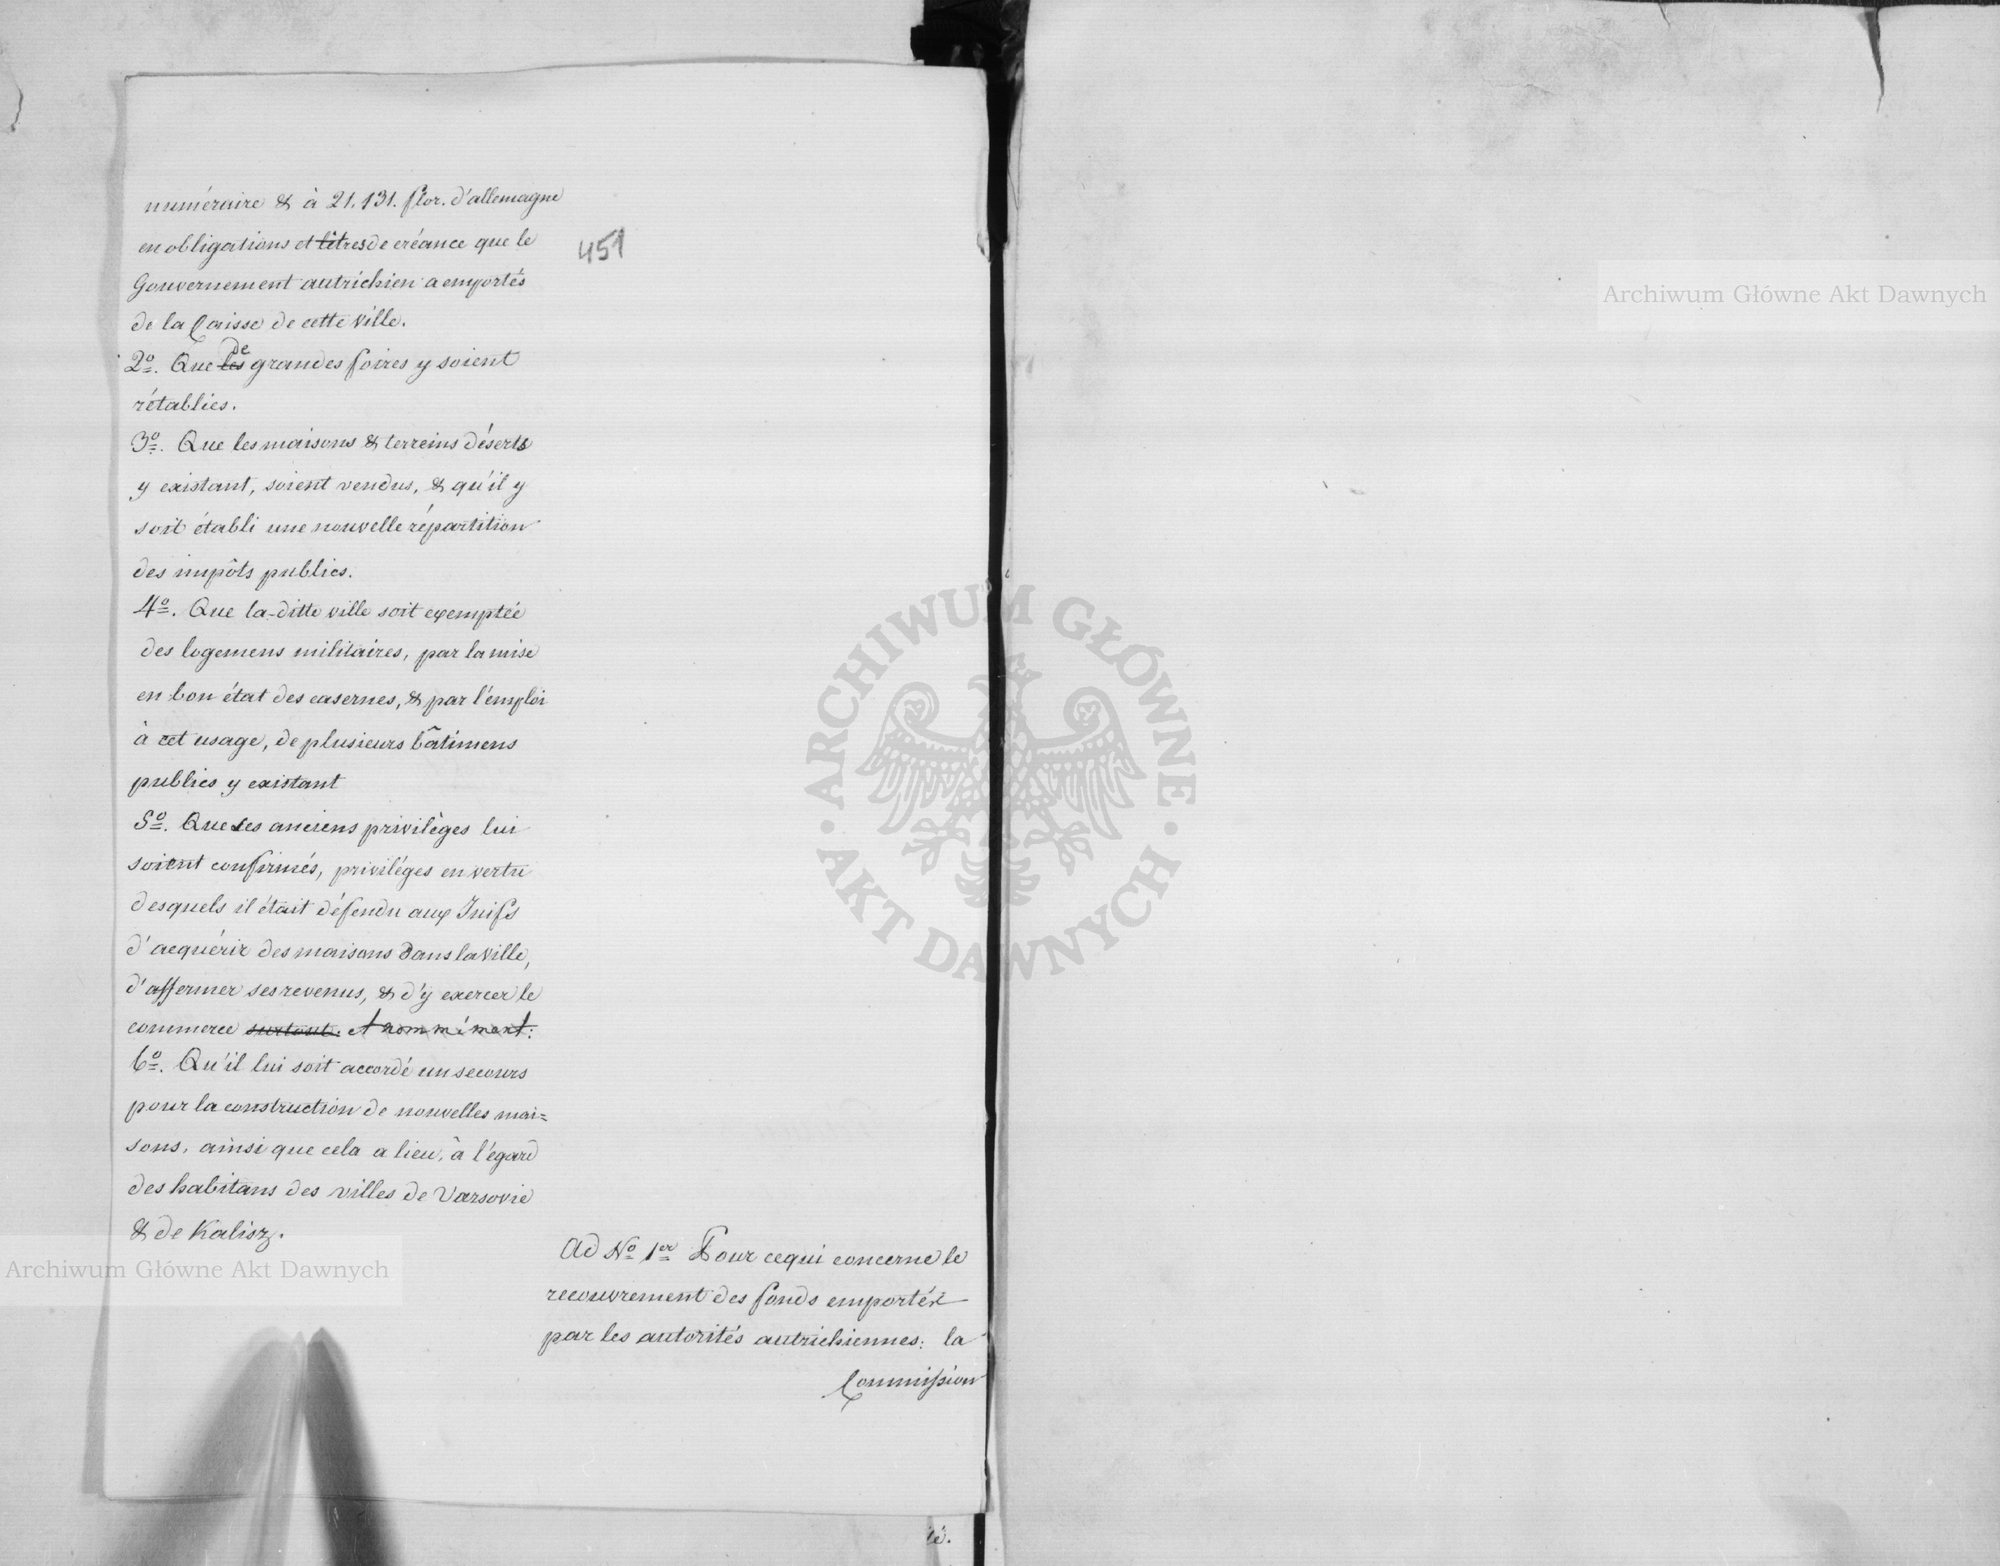 numéraire & à 21,131. flor. d'allemagne
en obligations et titres de créance que le
451
Gouvernement autrichien a emportés
de la Caisse de cette ville.
2º. Que les de grandes foires y soient
rétablies.
3º. Que les maisons & terreins déserts
y existant, soient vendus, & qu'il y
soit établi une nouvelle répartition
des impôts publics.
4º. Que la-ditte ville soit exemptée
des logemens militaires, par la mise
en bon état des casernes, & par l'emploi
à cet usage, de plusieurs bâtimens
publics y existant
5º. Que ses anciens privilèges lui
soient confirmés, privilèges en vertu
desquels il était défendu aux Juifs
d'acquérir des maisons dans la ville,
d'affermer ses revenus, & d'y exercer le
commerce surtout. et nommément:
6º. Qu'il lui soit accordé un secours
pour la construction de nouvelles mai=
sons, ainsi que cela a lieu, à l'égard
des habitans des villes de Varsovie
& de Kalisz.
Ad Nº 1er Pour ce qui concerne le
recouvrement des fonds emportés
par les autorités autrichiennes: la
Commission
té.
Archiwum Główne Akt Dawnych
Archiwum Główne Akt Dawnych
ARCHIWUM GŁÓWNE · AKT DAWNYCH ·